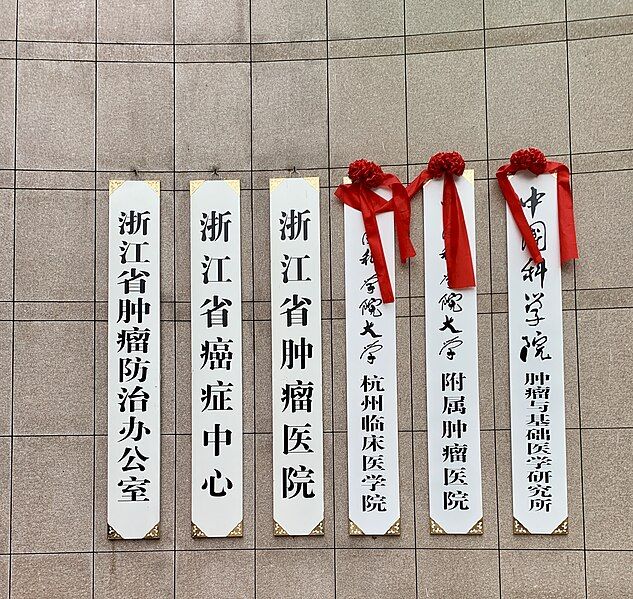 浙江省肿瘤防治办公室
浙江省癌症中心
浙江省肿瘤医院
国科学院大学 杭州临床医学院
中国科学院大学 附属肿瘤医院
中国科学院 肿瘤与基础医学研究所